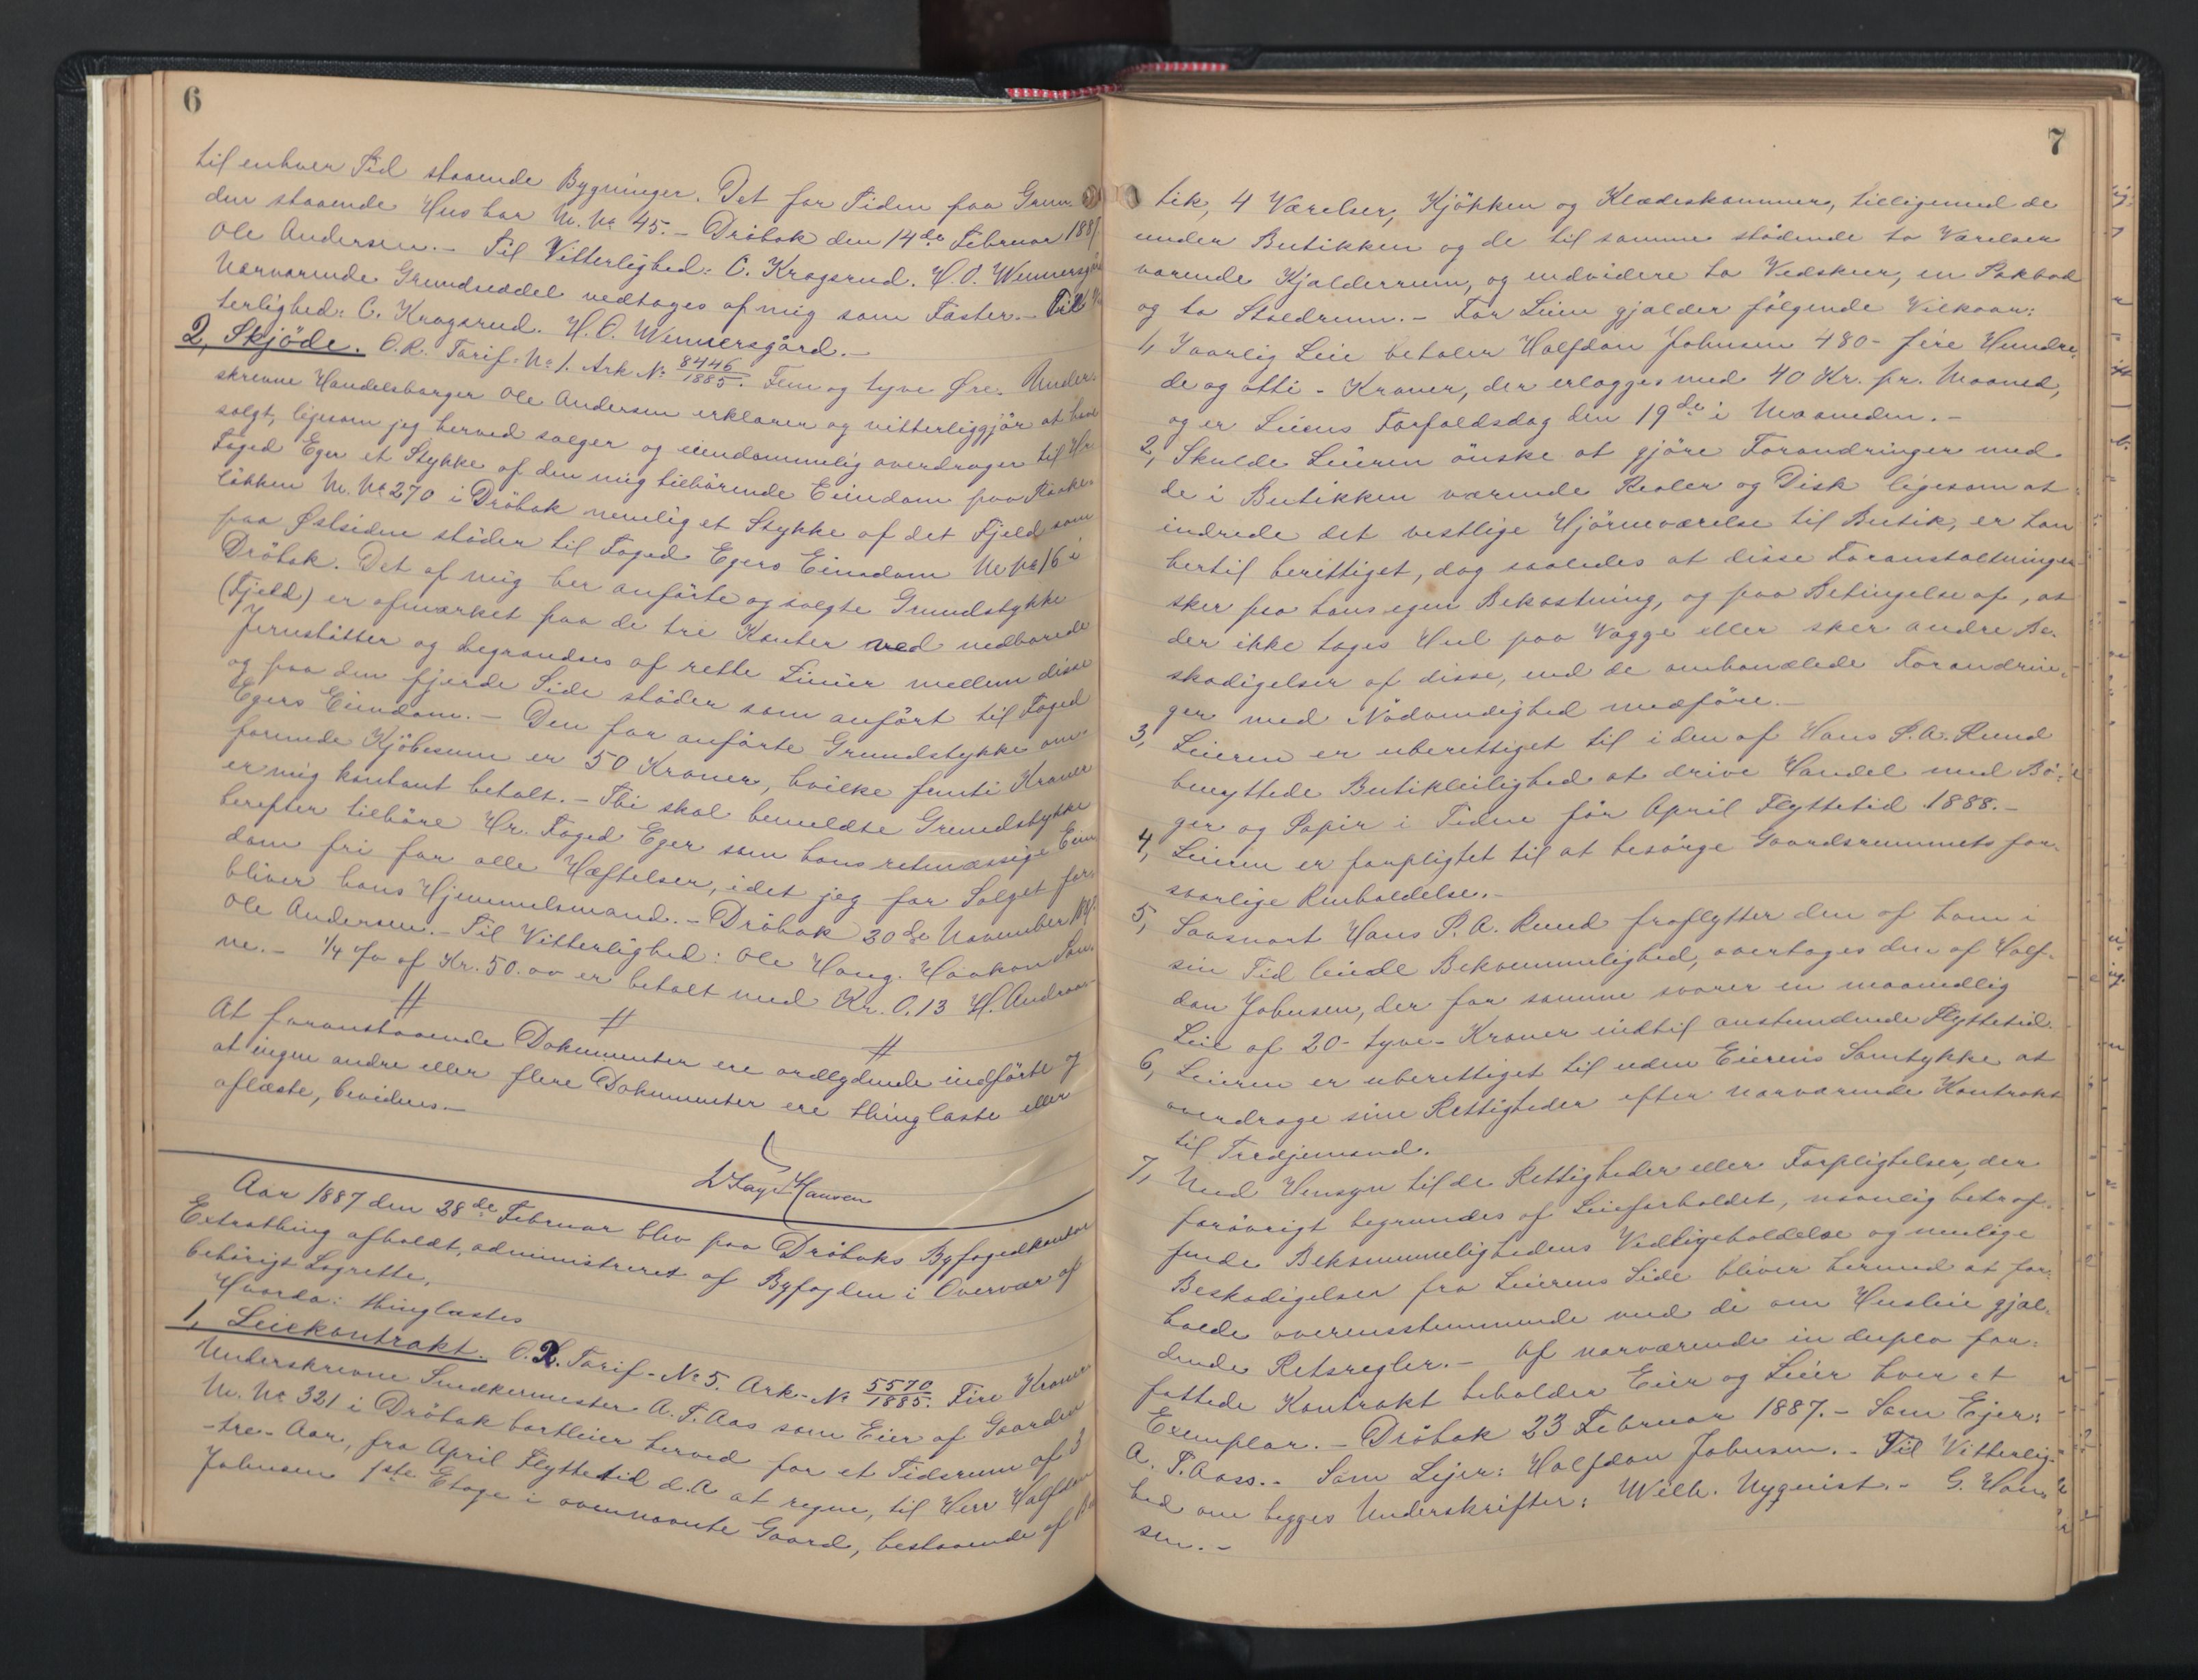 6
til enhver Tid staaende Bygninger. Det for Tiden paa Grun-
den staaende Hus har M. No 45. - Dröbak den 14de Februar 188
Ole Andersen. - Til Vitterlighed: C. Krogsrud. H. O. Wennersgård
Nærværende Grundseddel vedtages af mig som Fæster. - Til Vit
terlighed: C. Krogsrud. H. O. Wennersgård. -
2, Skjöde. O.R. Tarif. No 1. Ark No 8446/1885. Fem og tyve Øre. Under-
skrevne Handelsborger Ole Andersen erklærer og vitterliggjör at have
solgt, ligesom jeg herved sælger og eiendommelig overdrager til Hr.
Foged Eger et Stykke af den mig tilhörende Eiendom paa
lökken M. No 270 i Dröbak nemlig et Stykke af det Fjeld som
paa Østsiden stöder til Foged Egers Eiendom M. No 16 i
Dröbak. Det af mig her anförte og solgte Grundstykke
(Fjeld) er afmærket paa de tre Kanter ved nedborede
Jernstötter og begrændses af rette Linier mellem disse
og paa den fjerde Side stöder som anfört til Foged
Egers Eiendom. - Den for anförte Grundstykke om-
forenede Kjöbesum er 50 Kroner, hvilke femti Kroner
er mig kontant betalt. - Thi skal bemeldte Grundstykke
herefter tilhöre Hr. Foged Eger som hans retmæssige Eien
dom fri for alle Hæftelser, idet jeg for Salget for-
bliver hans Hjemmelsmand. - Dröbak 30de November
Ole Andersen. - Til Vitterlighed: Ole Haug. Haakon
ne. - 1/4 % af Kr. 50.00 er betalt med Kr. 0.13 H. Andreas-
# # #
At foranstaaende Dokumenter ere ordlydende indförte og
at ingen andre eller flere Dokumenter ere thinglæste eller
aflæste, bevidnes. -
Hansen
Aar 1887 den 28de Februar blev paa Dröbaks Byfogedkontor
Extrathing afholdt, administreret af Byfogden i Overvær af
behörigt Lagrette,
Hvorda: thinglæstes
1, Leiekontrakt. O.R. Tarif. No 5. Ark. No 5570/1885. Fire Kroner
Underskrevne Snedkermester A. T. Aas som Eier af Gaarden
M. No 321 i Dröbak bortleier herved for et Tidsrum af 3
-tre- Aar, fra April Flyttetid d. A at regne, til Herr Halfdan
Johnsen 1ste Etage i ovennævnte Gaard, bestaaende af Bu
7
tik, 4 Værelser, Kjökken og Klædeskammer, tilligemed de
under Butikken og de til samme stödende to Værelser
værende Kjælderrum, og endvidere to Vedskur, en Pakbod
og to Staldrum. - For Leien gjælder fölgende Vilkaar:
1, Jaarlig Leie betaler Halfdan Johnsen 480 - fire Hundre-
de og otti - Kroner, der erlægges med 40 Kr. pr. Maaned,
og er Leiens Forfaldsdag den 19de i Maaneden. -
2, Skulde Leieren önske at gjöre Forandringer med
de i Butikken værende Reoler og Disk ligesom at
indrede det vestlige Hjörneværelse til Butik, er han
hertil berettiget, dog saaledes at disse Foranstaltninger
sker paa hans egen Bekostning, og paa Betingelse af, at
der ikke tages Hul paa Vægge eller sker andre Be-
skadigelser af disse, end de omhandlede Forandrin-
ger med Nödvendighed medföre. -
3, Leieren er uberettiget til i den af Hans P. A. Rund
benyttede Butikleilighed at drive Handel med Bö-
ger og Papir i Tiden för April Flyttetid 1888. -
4, Leieren er forpligtet til at besörge Gaardsrummets for-
svarlige Renholdelse. -
5, Saasnart Hans P. A. Rund fraflytter den af ham i
sin Tid leiede Bekvemmelighed, overtages den af Half-
dan Johnsen, der for samme svarer en maanedlig
Leie af 20 - tyve - Kroner indtil anstundende Flyttetid.
6, Leieren er uberettiget til uden Eierens Samtykke at
overdrage sine Rettigheder efter nærværende Kontrakt
til Tredjemand.
7, Med Hensyn til de Rettigheder eller Forpligtelser, der
forövrigt begrundes af Leieforholdet, navnlig betræf-
fende Bekvemmelighedens Vedligeholdelse og mulige
Beskadigelser fra Leierens Side bliver hermed at for-
holde overensstemmende med de om Husleie gjæl-
dende Retsregler. - Af nærværende in duplo for-
fattede Kontrakt beholder Eier og Leier hver et
Exemplar. - Dröbak 23 Februar 1887. - Som Ejer:
A. T. Aass. - Som Lejer: Halfdan Johnsen. - Til Vitterlig-
hed om begges Underskrifter: Wilh. Nyquist. - G. Han-
sen. -